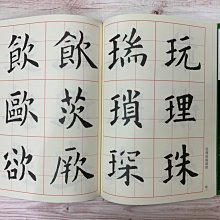 玩理珠
瑞瑣琛
飲茨厥
飲歐欲